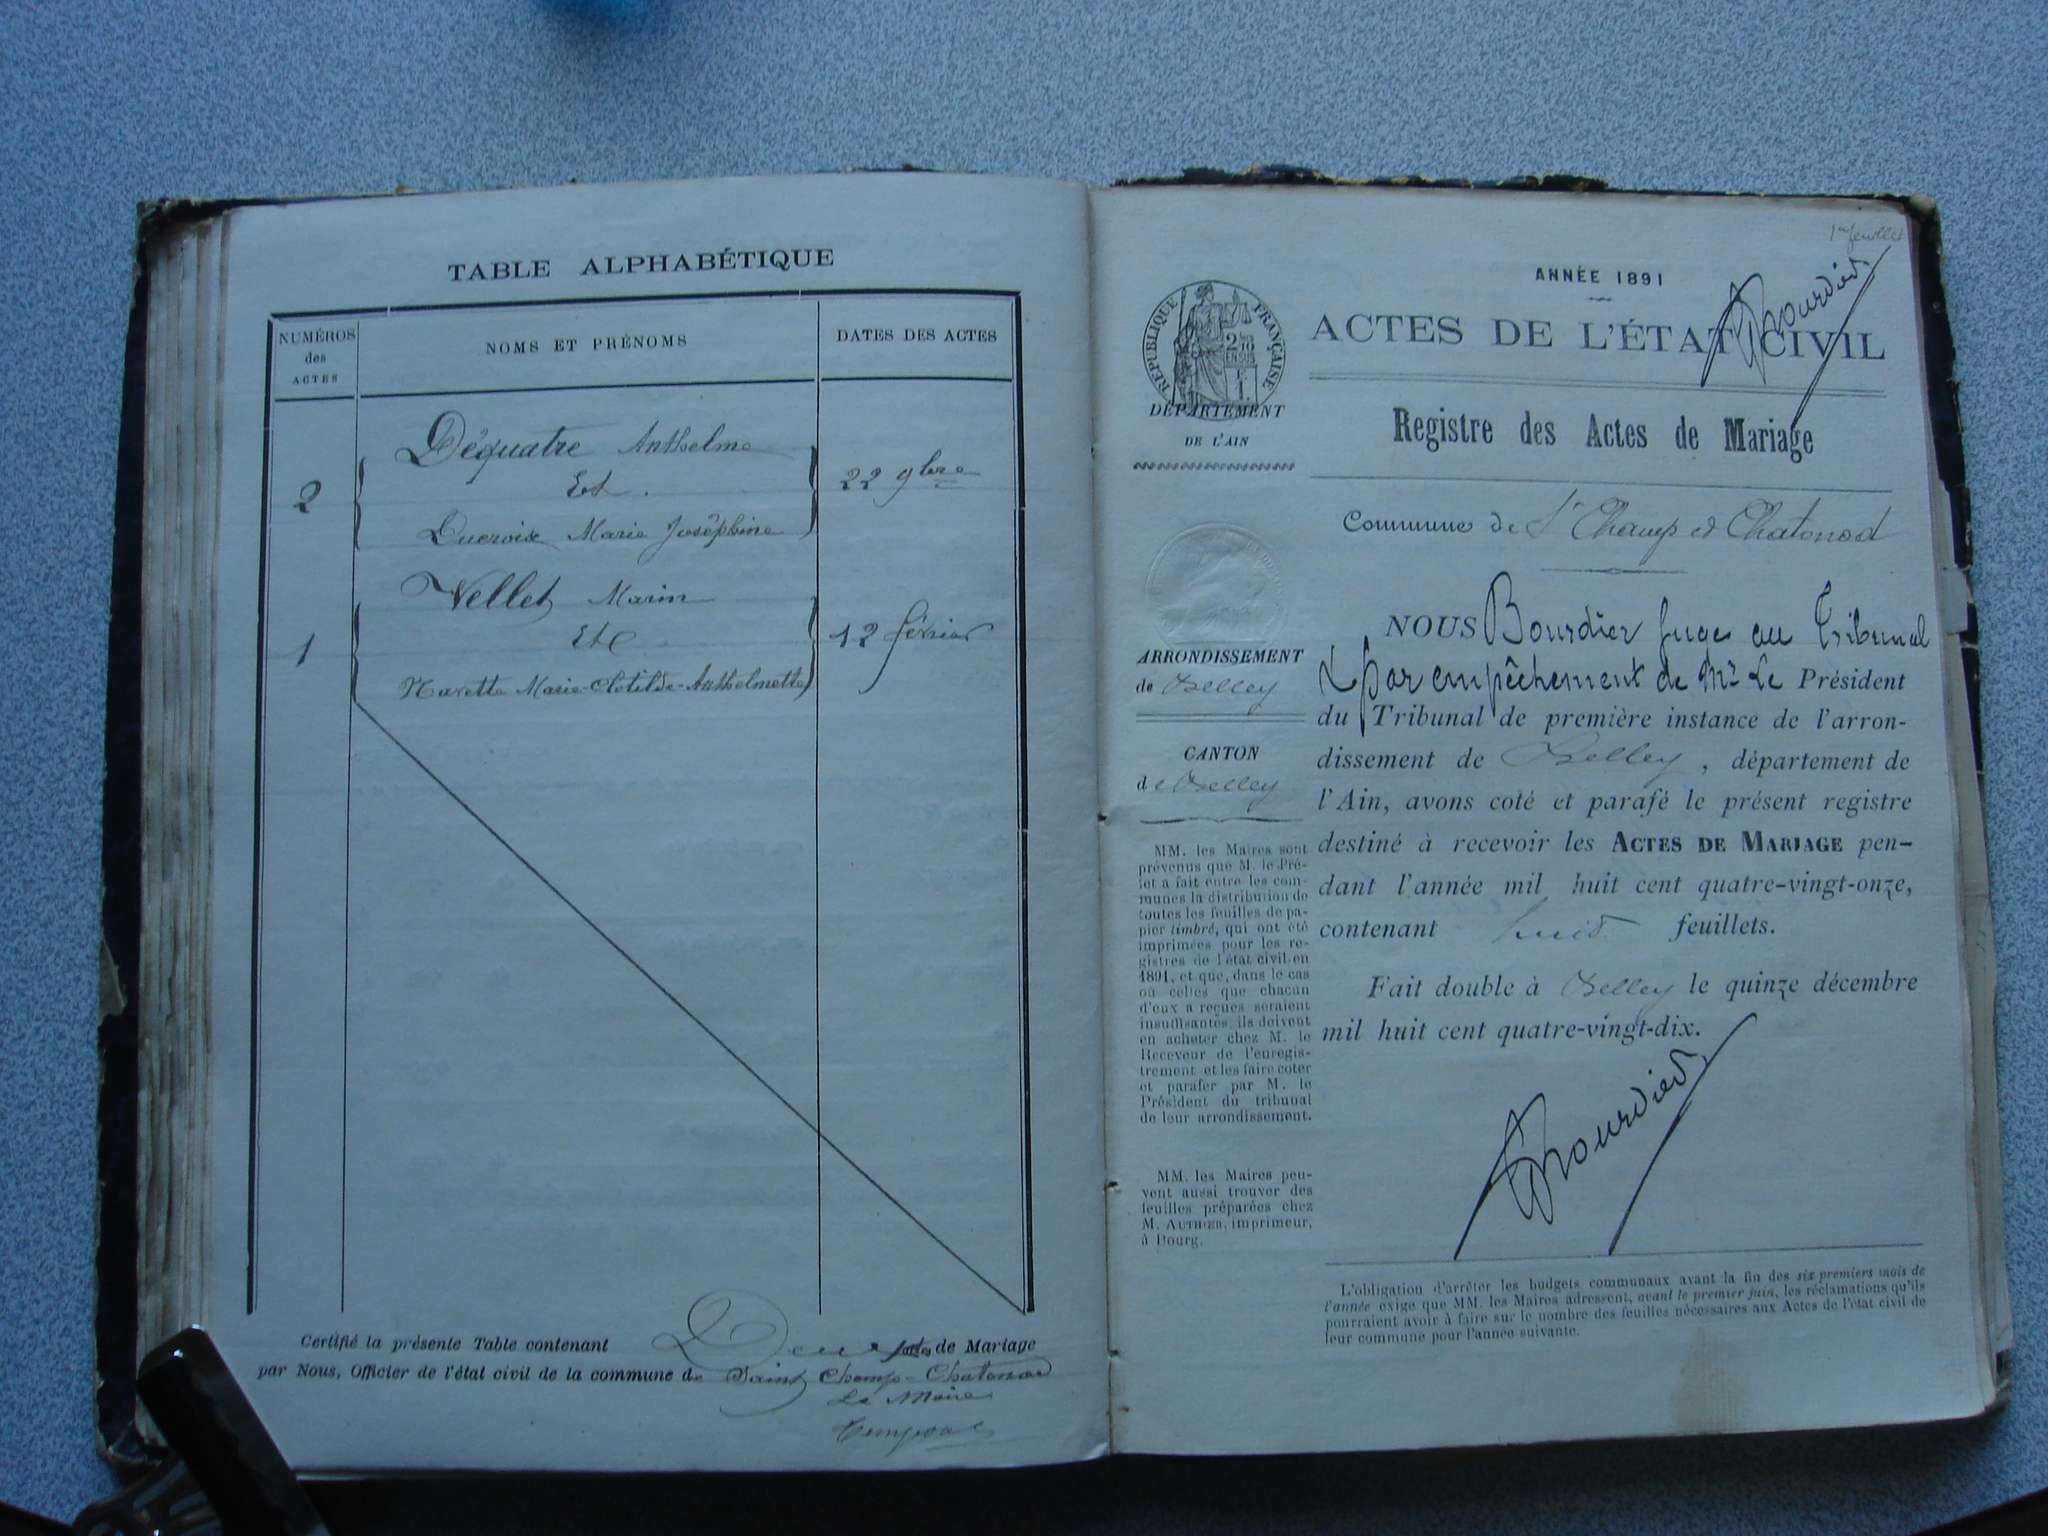 TABLE ALPHABÉTIQUE
NUMÉROS
des
ACTES
NOMS ET PRÉNOMS
DATES DES ACTES
2
Déquatre Anthelme
Et
Ducroix Marie Joséphine
22 9bre
1
Vellet Marin
Et
Navette Marie-Clotilde-Anthelmette
12 février
Certifié la présente Table contenant Deux actes de Mariage
par Nous, Officier de l'état civil de la commune de Saint Champ-Chatonod
Le Maire
1er feuillet
Bourdier
ANNÉE 1891
ACTES DE L'ÉTAT CIVIL
RÉPUBLIQUE FRANÇAISE
DÉPARTEMENT
DE L'AIN
Registre des Actes de Mariage
Commune de St Champ et Chatonod
ARRONDISSEMENT
de Belley
CANTON
de Belley
NOUS Bourdier Juge au Tribunal
par empêchement de Mr Le Président
du Tribunal de première instance de l'arron-
dissement de Belley, département de
l'Ain, avons coté et parafé le présent registre
destiné à recevoir les ACTES DE MARIAGE pen-
dant l'année mil huit cent quatre-vingt-onze,
contenant huit feuillets.
Fait double à Belley le quinze décembre
mil huit cent quatre-vingt-dix.
Bourdier
MM. les Maires sont
prévenus que M. le Pré-
fet a fait entre les com-
munes la distribution de
toutes les feuilles de pa-
pier timbré, qui ont été
imprimées pour les re-
gistres de l'état civil en
1891, et que, dans le cas
où celles que chacun
d'eux a reçues seraient
insuffisantes, ils doivent
en acheter chez M. le
Receveur de l'enregis-
trement et les faire coter
et parafer par M. le
Président du tribunal
de leur arrondissement.
MM. les Maires peu-
vent aussi trouver des
feuilles préparées chez
M. AUTHIER, imprimeur,
à Bourg.
L'obligation d'arrêter les budgets communaux avant la fin des six premiers mois de
l'année exige que MM. les Maires adressent, avant le premier juin, les réclamations qu'ils
pourraient avoir à faire sur le nombre des feuilles nécessaires aux Actes de l'état civil de
leur commune pour l'année suivante.